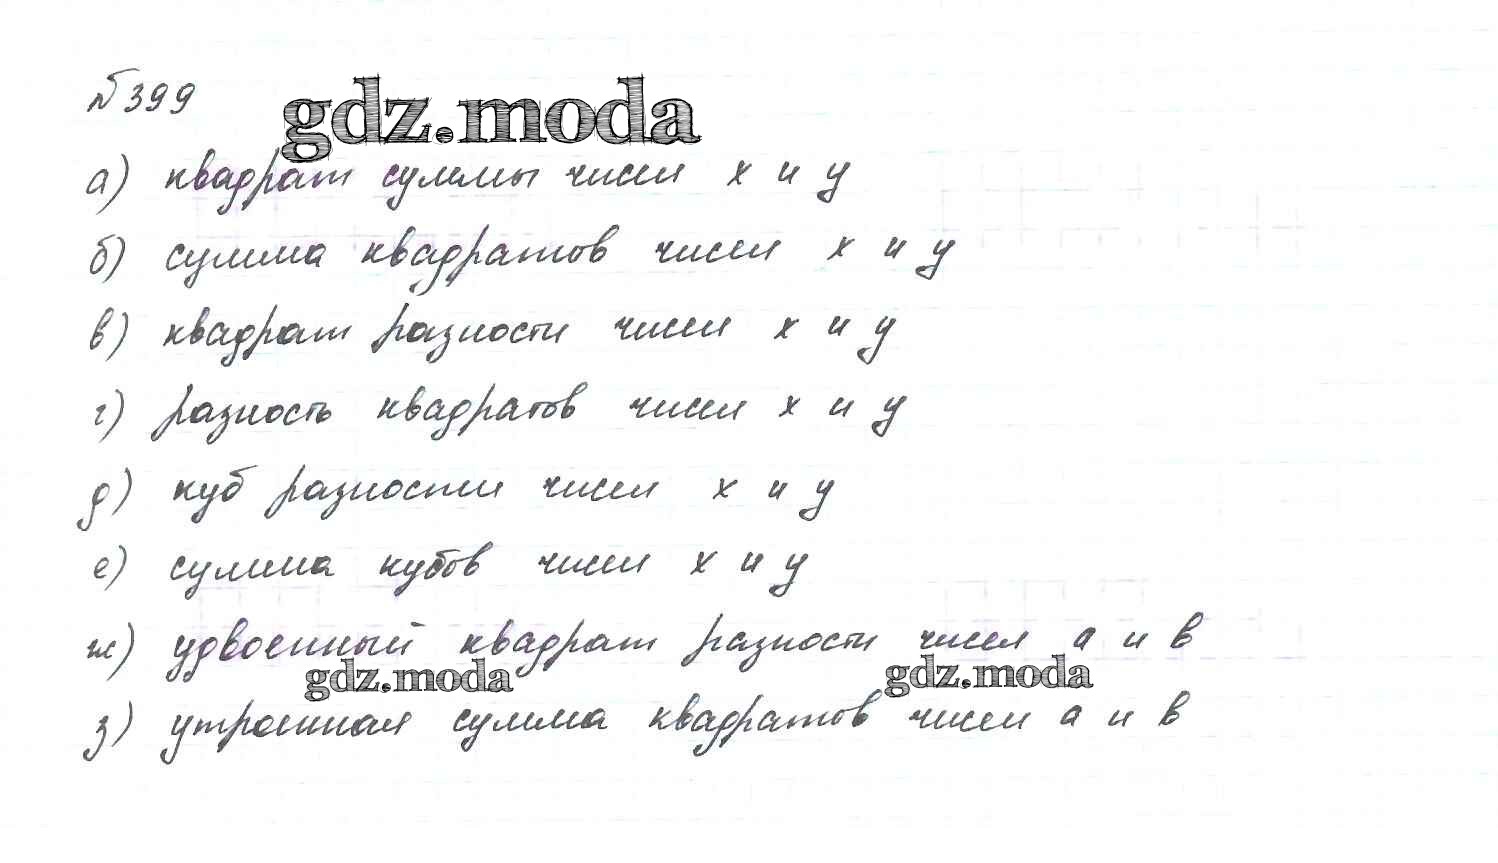 №399
gdz.moda
а) квадрат суммы чисел x и y
б) сумма квадратов чисел x и y
в) квадрат разности чисел x и y
г) разность квадратов чисел x и y
д) куб разности чисел x и y
е) сумма кубов чисел x и y
ж) удвоенный квадрат разности чисел a и b
gdz.moda gdz.moda
з) утроенная сумма квадратов чисел a и b